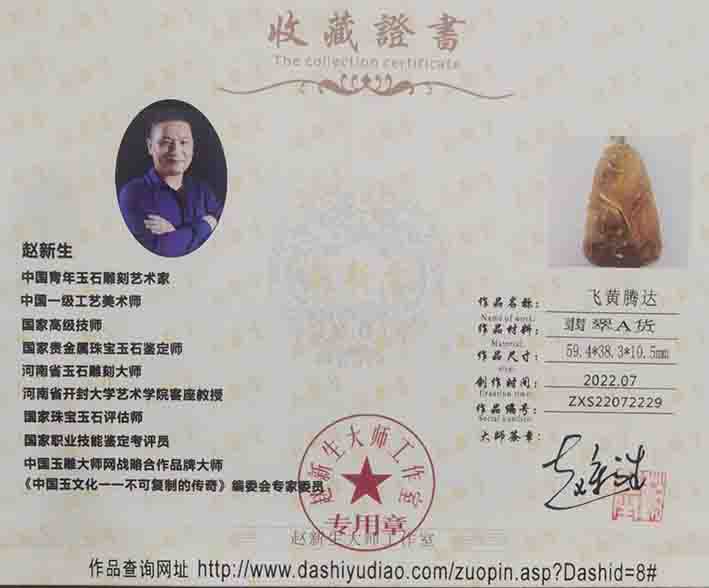 收藏證書
The collection certificate
赵新生
中国青年玉石雕刻艺术家
中国一级工艺美术师
国家高级技师
国家贵金属珠宝玉石鉴定师
河南省玉石雕刻大师
河南省开封大学艺术学院客座教授
国家珠宝玉石评估师
国家职业技能鉴定考评员
中国玉雕大师网战略合作品牌大师
《中国玉文化一一不可复制的传奇》编委会专家委员
作品名称: 飞黄腾达
Name of work:
作品材料: 翡翠A货
Material:
作品尺寸: 59.4*38.3*10.5mm
size:
创作时间: 2022.07
Creation time:
作品编号: ZXS22072229
Serial number:
大师签章:
赵新生大师工作室
专用章
赵新生大师工作室
作品查询网址 http://www.dashiyudiao.com/zuopin.asp?Dashid=8#